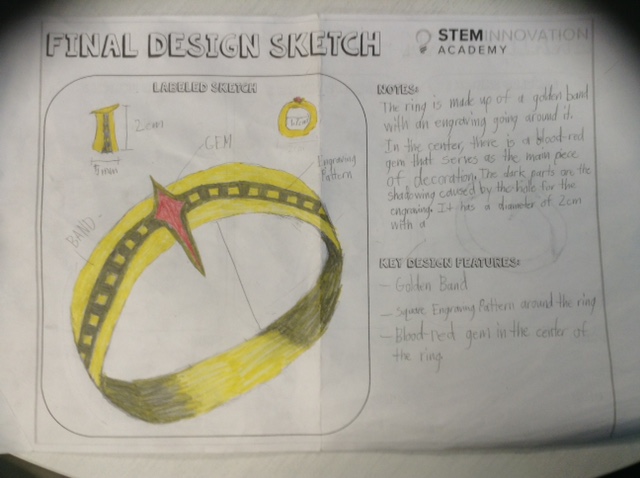 FINAL DESIGN SKETCH
STEM INNOVATION
ACADEMY
LABELED SKETCH
2cm
5mm
GEM
Engraving
Pattern
BAND
NOTES:
The ring is made up of a golden band
with an engraving going around it.
In the center, there is a blood-red
gem that serves as the main piece
of decoration. The dark parts are the
shadowing caused by the hole for the
engraving. It has a diameter of 2cm
with a
KEY DESIGN FEATURES:
- Golden Band
- Square Engraving Pattern around the ring
- Blood-red gem in the center of
the ring